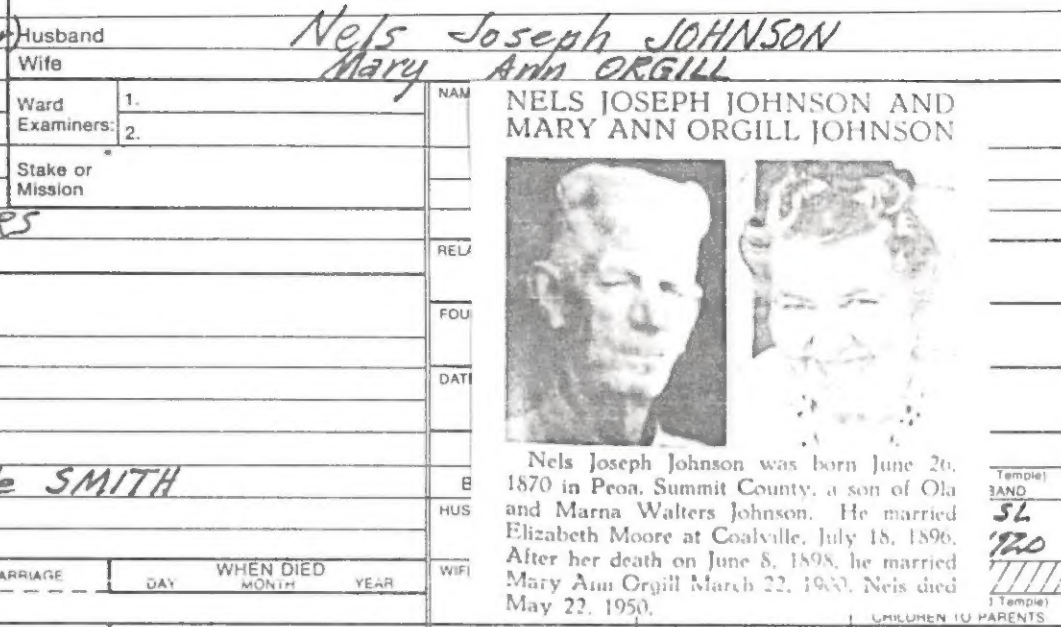 Husband Nels Joseph JOHNSON
Wife Mary Ann ORGILL
Ward
Examiners:
1.
2.
Stake or
Mission
NAM
RELA
FOU
DATE
SMITH
B
HUS
WIFE
ARRIAGE
WHEN DIED
DAY MONTH YEAR
NELS JOSEPH JOHNSON AND
MARY ANN ORGILL JOHNSON
Nels Joseph Johnson was born June 26,
1870 in Peoa, Summit County, a son of Ola
and Marna Walters Johnson. He married
Elizabeth Moore at Coalville, July 18, 1896.
After her death on June 8, 1898, he married
Mary Ann Orgill March 22, 1900. Nels died
May 22, 1950.
Temple)
BAND
SL
1920
Temple)
CHILDREN TO PARENTS